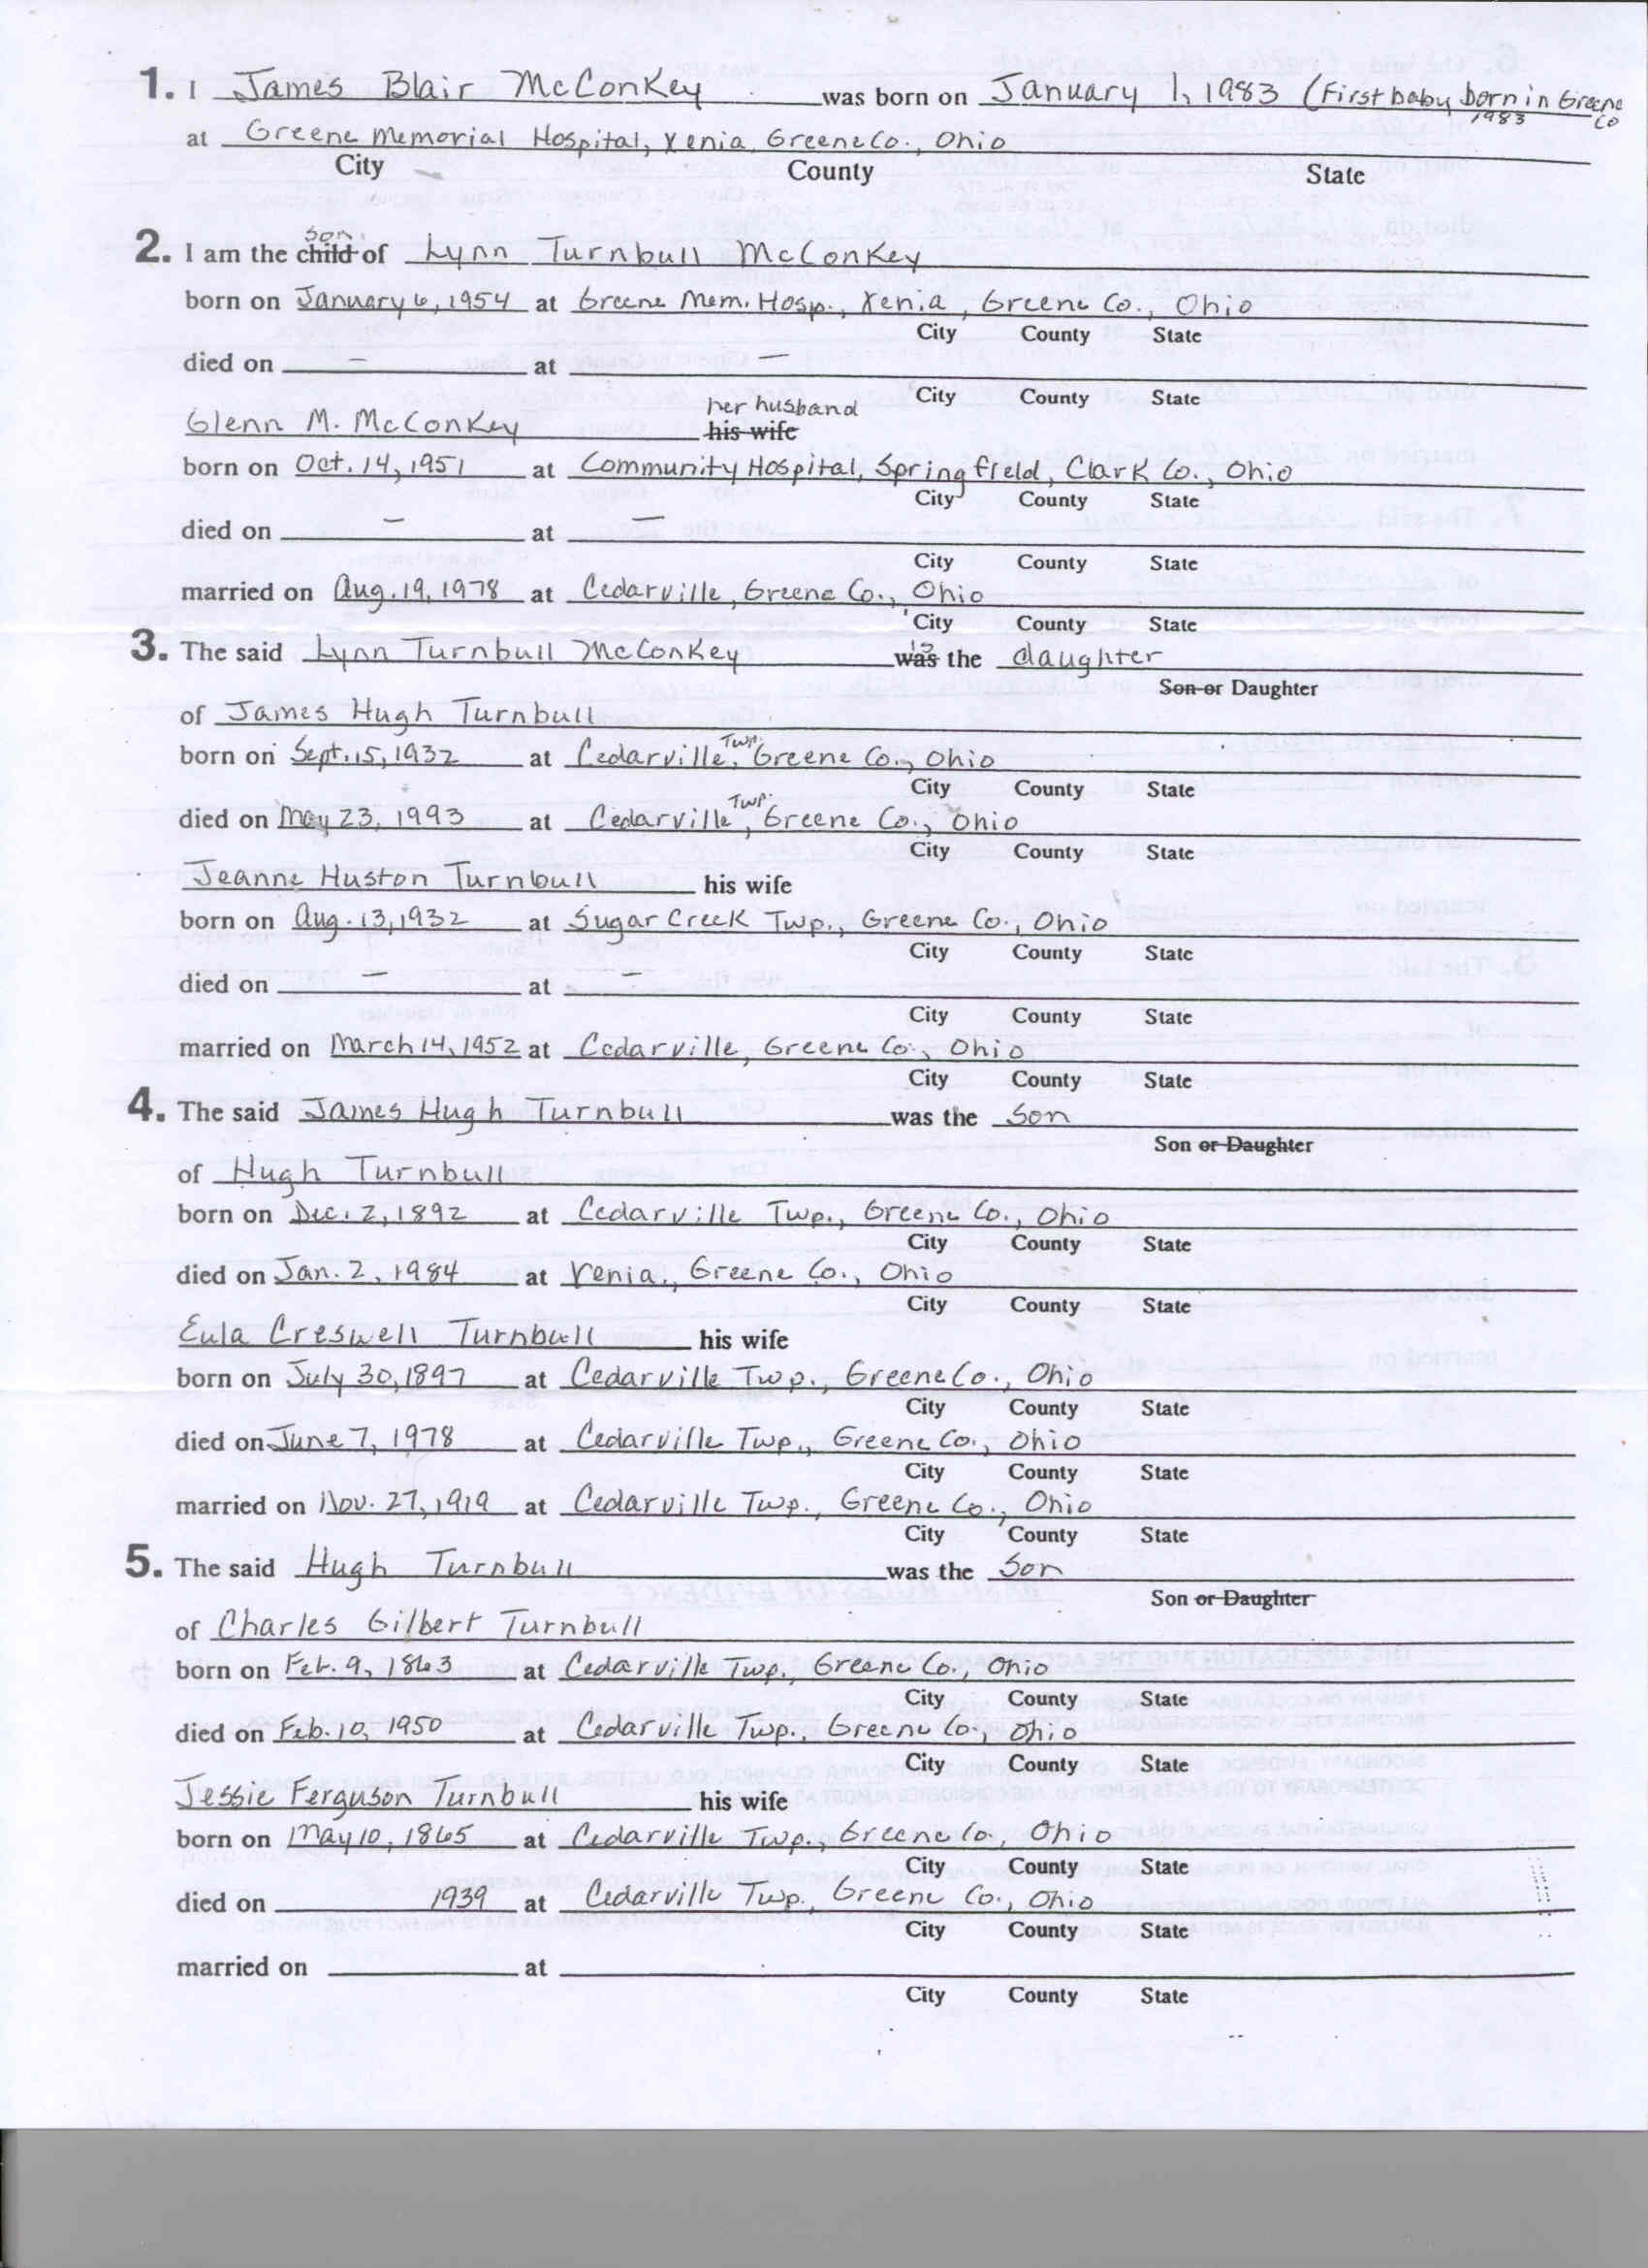 1. I James Blair McConkey was born on January 1, 1983 (First baby born in Greene Co 1983
at Greene Memorial Hospital, Xenia, Greene Co., Ohio
City County State
2. I am the child son of Lynn Turnbull McConkey
born on January 6, 1954 at Greene Mem. Hosp., Xenia, Greene Co., Ohio
City County State
died on – at –
City County State
Glenn M. McConkey his wife her husband
born on Oct. 14, 1951 at Community Hospital, Springfield, Clark Co., Ohio
City County State
died on – at –
City County State
married on Aug. 19, 1978 at Cedarville, Greene Co., Ohio
City County State
3. The said Lynn Turnbull McConkey was is the daughter
Son or Daughter
of James Hugh Turnbull
born on Sept. 15, 1932 at Cedarville Twp., Greene Co., Ohio
City County State
died on May 23, 1993 at Cedarville Twp., Greene Co., Ohio
City County State
Jeanne Huston Turnbull his wife
born on Aug. 13, 1932 at Sugar Creek Twp., Greene Co., Ohio
City County State
died on – at –
City County State
married on March 14, 1952 at Cedarville, Greene Co., Ohio
City County State
4. The said James Hugh Turnbull was the son
Son or Daughter
of Hugh Turnbull
born on Dec. 2, 1892 at Cedarville Twp., Greene Co., Ohio
City County State
died on Jan. 2, 1984 at Xenia, Greene Co., Ohio
City County State
Eula Creswell Turnbull his wife
born on July 30, 1897 at Cedarville Twp., Greene Co., Ohio
City County State
died on June 7, 1978 at Cedarville Twp., Greene Co., Ohio
City County State
married on Nov. 27, 1919 at Cedarville Twp., Greene Co., Ohio
City County State
5. The said Hugh Turnbull was the son
Son or Daughter
of Charles Gilbert Turnbull
born on Feb. 9, 1863 at Cedarville Twp., Greene Co., Ohio
City County State
died on Feb. 10, 1950 at Cedarville Twp., Greene Co., Ohio
City County State
Jessie Ferguson Turnbull his wife
born on May 10, 1865 at Cedarville Twp., Greene Co., Ohio
City County State
died on 1939 at Cedarville Twp., Greene Co., Ohio
City County State
married on at
City County State